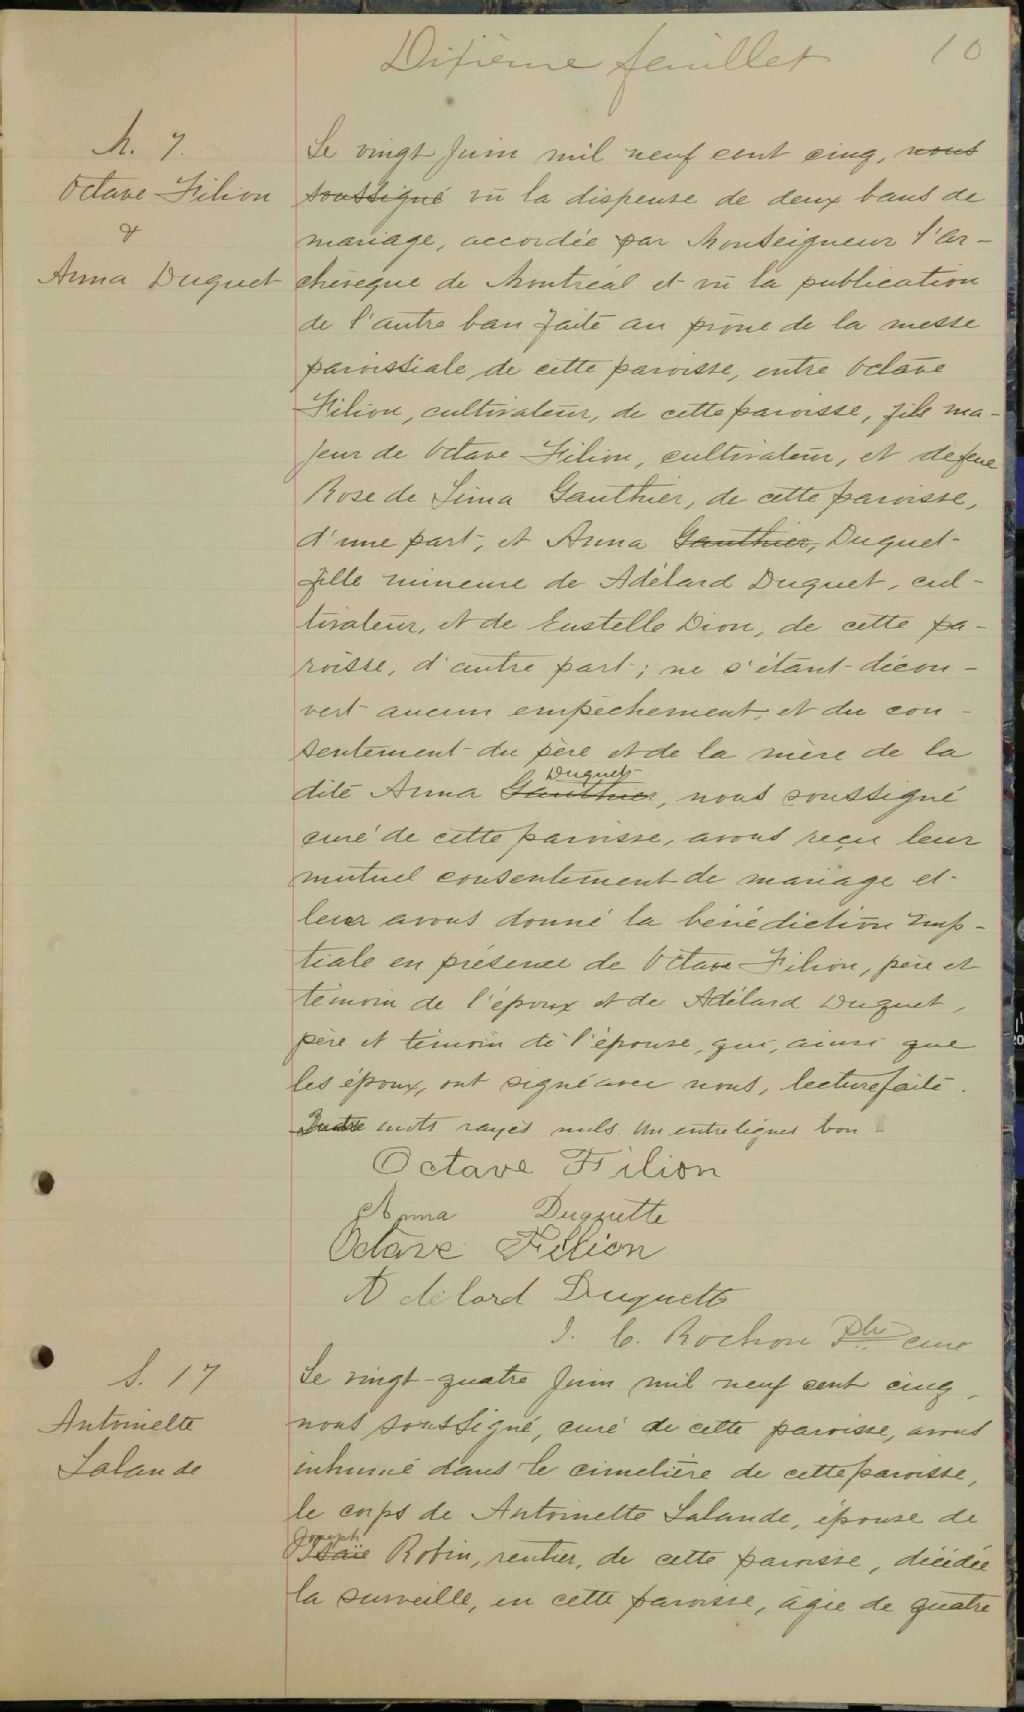 Dixième feuillet 10
M. 7.
Octave Filion
&
Anna Duquet
Le vingt Juin mil neuf cent cinq, nous
soussigné vû la dispense de deux bans de
mariage, accordée par Monseigneur l'Ar-
chevêque de Montréal et vû la publication
de l'autre ban faite au prône de la messe
paroissiale de cette paroisse, entre Octave
Filion, cultivateur, de cette paroisse, fils ma-
jeur de Octave Filion, cultivateur, et de feue
Rose de Lima Gauthier, de cette paroisse,
d'une part, et Anna Gauthier, Duquet
fille mineure de Adélard Duquet, cul-
tivateur, et de Eustelle Dion, de cette pa-
roisse, d'autre part; ne s'étant décou-
vert aucun empêchement, et du con-
sentement du père et de la mère de la
dite Anna Gauthier, Duquet nous soussigné
curé de cette paroisse, avons reçu leur
mutuel consentement de mariage et
leur avons donné la bénédiction nup-
tiale en présence de Octave Filion, père et
témoin de l'époux et de Adélard Duquet,
père et témoin de l'épouse, qui, ainsi que
les époux, ont signé avec nous, lecture faite.
Quatre mots rayés nuls. Un entrelignes bon
Octave Filion
Anna Duquette
Octave Fillion
Adelard Duquette
J. C. Rochon Ptre curé
S. 17
Antoinette
Lalande
Le vingt-quatre Juin mil neuf cent cinq,
nous soussigné, curé de cette paroisse, avons
inhumé dans le cimetière de cette paroisse,
le corps de Antoinette Lalande, épouse de
Joseph
Isaïe Robin, rentier, de cette paroisse, décédée
la surveille, en cette paroisse, âgée de quatre